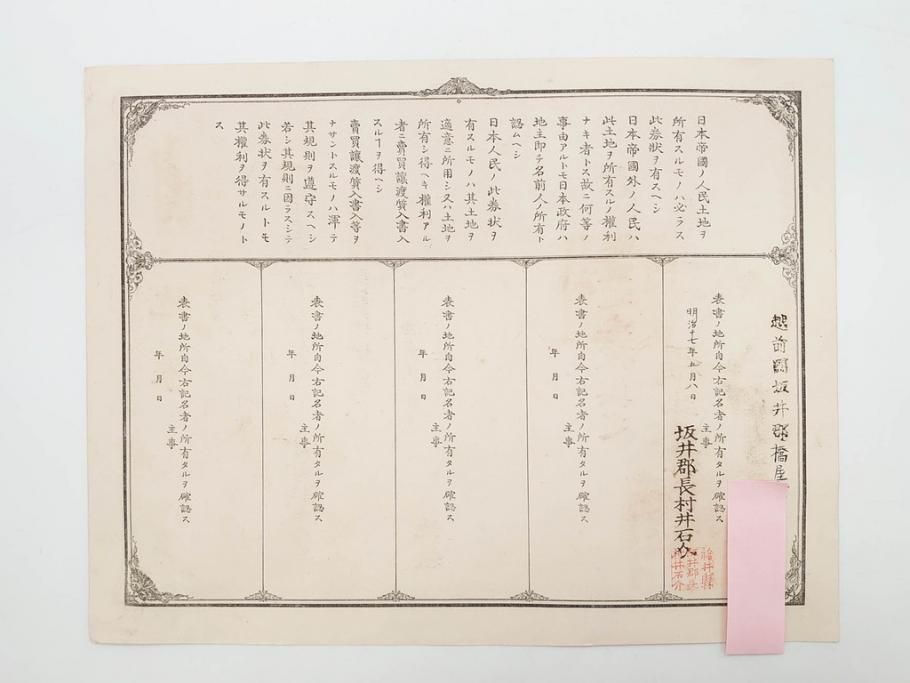 日本帝國ノ人民土地ヲ
所有スルモノハ必ラス
此券狀ヲ有スヘシ
日本帝國外ノ人民ハ
此土地ヲ所有スルノ權利
ナキ者トス故ニ何等ノ
事由アルトモ日本政府ハ
地主即チ名前人ノ所有ト
認ムヘシ
日本人民ノ此券狀ヲ
有スルモノハ其土地ヲ
適意ニ所用シ又ハ土地ヲ
所有シ得ヘキ權利アル
者ニ賣買讓渡質入書入
スルヿヲ得ヘシ
賣買讓渡質入書入等ヲ
ナサントスルモノハ渾テ
其規則ヲ遵守スヘシ
若シ其規則ニ因ラスシテ
此券狀ヲ有スルトモ
其權利ヲ得サルモノト
ス
越前國坂井郡橋屋
表書ノ地所自今右記名者ノ所有タルヲ確認ス
主事
明治十七年五月八日
坂井郡長村井石介
福井縣
坂井郡長
村井石介
表書ノ地所自今右記名者ノ所有タルヲ確認ス
主事
年月日
表書ノ地所自今右記名者ノ所有タルヲ確認ス
主事
年月日
表書ノ地所自今右記名者ノ所有タルヲ確認ス
主事
年月日
表書ノ地所自今右記名者ノ所有タルヲ確認ス
主事
年月日